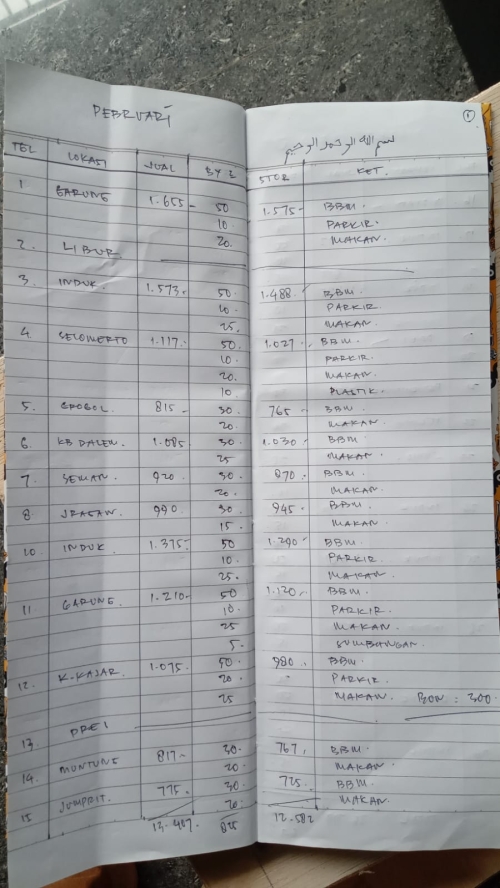 PEBRUARI
بسم الله الرحمن الرحيم
TGL LOKASI JUAL BY 2 STOR KET.
1 GARUNG 1.655 - 50 1.575 - BBM.
10. PARKIR.
20. MAKAN.
2. LIBUR
3. INDUK 1.573 - 50. 1.488. BBM.
10. PARKIR
25. MAKAN.
4. SELOMERTO 1.117. 50. 1.027. BBM.
10. PARKIR.
20. MAKAN
10 PLASTIK.
5. GROGOL. 815 - 30 765 - BBM.
20. MAKAN.
6 KB DALEM. 1.085 30. 1.030. BBM.
25 MAKAN.
7 SEMAN. 920 30. 870. BBM.
20. MAKAN.
8. JRAGAN. 990 30 945 - BBM.
15. MAKAN.
10. INDUK. 1.375 - 50 1.290 - BBM.
10. PARKIR.
25. MAKAN
11 GARUNG. 1.210 - 50 1.120. BBM.
10. PARKIR.
25 MAKAN.
5. SUMBANGAN.
12. K.KAJAR. 1.075 50. 980. BBM.
20. PARKIR.
25 MAKAN. BON : 300
13. PREI
14. MUNTUNG 817 - 30. 767. BBM.
20. MAKAN.
15 JUMPRIT. 775. 30. 725. BBM.
20. MAKAN.
13.407. 825 12.582